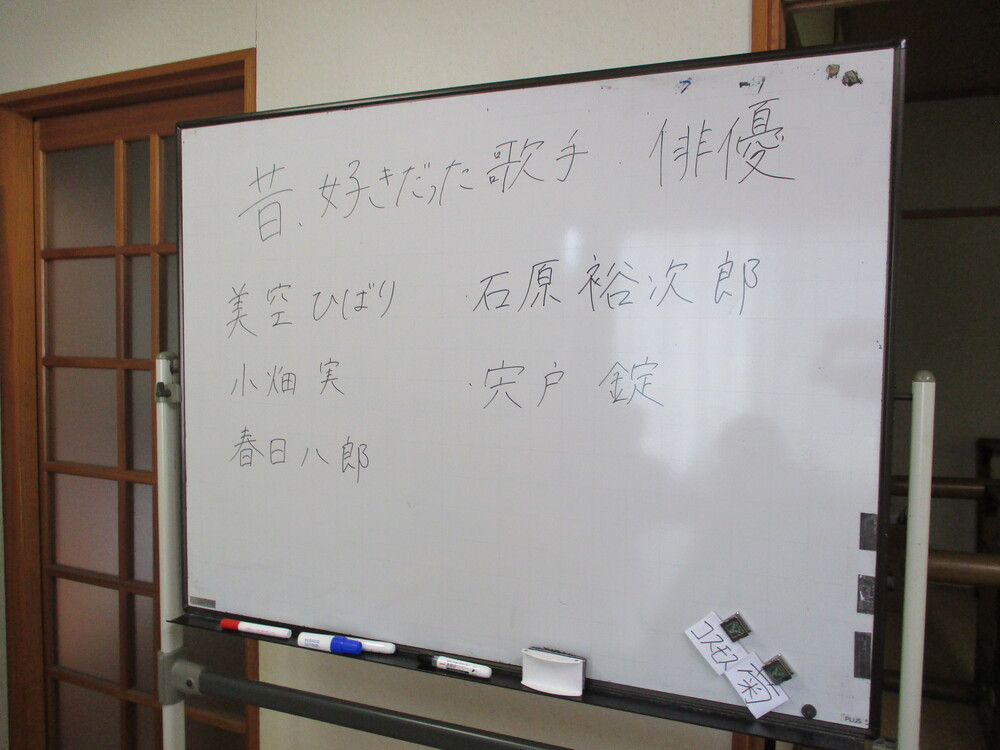 昔、好きだった歌手・俳優
美空ひばり
小畑 実
春日八郎
・石原裕次郎
・宍戸 錠
コスモス
菊
PLUS